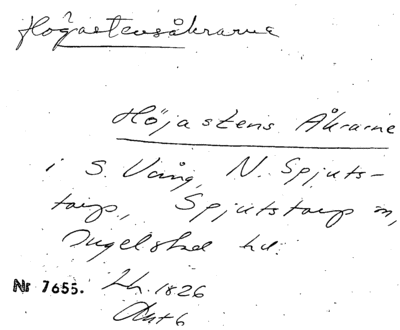 Högastensåkrarne
Höjastens Åkrarne
i S. Vång, N. Spjuts-
torp, Spjutstorp sn,
Ingelstad hd.
Nr 7655. Lh. 1826
Akt 6